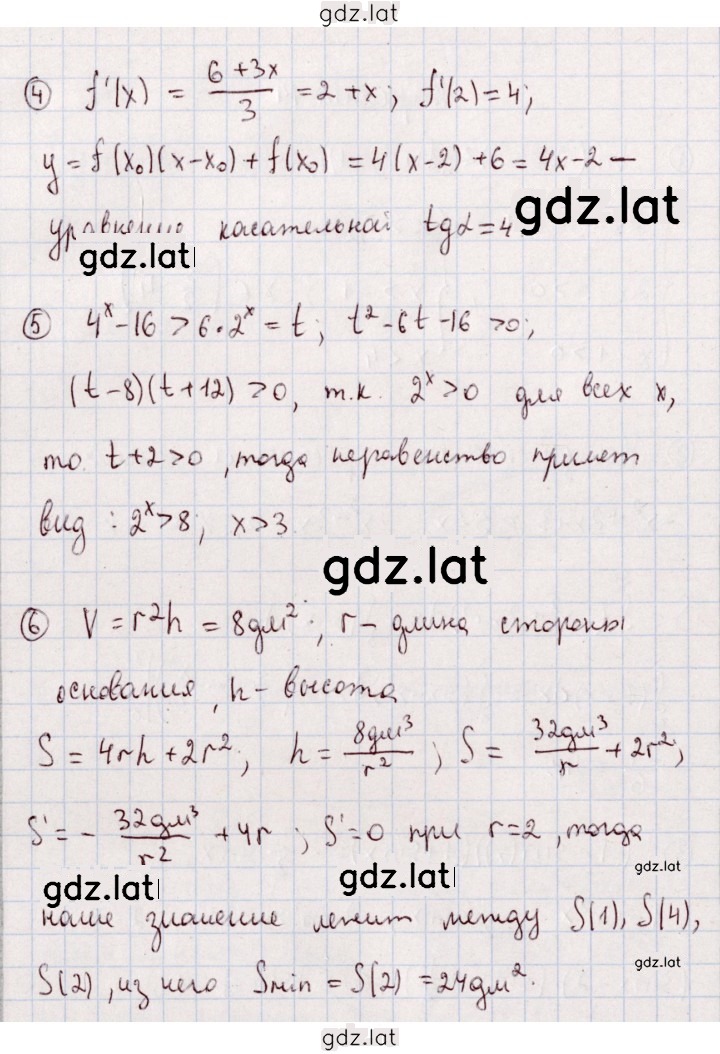 gdz.lat
④ f'(x) = (6+3x)/3 = 2+x; f'(2)=4;
y = f(x₀)(x-x₀)+f(x₀) = 4(x-2)+6 = 4x-2 –
уравнение касательной tgα=4
gdz.lat
gdz.lat
⑤ 4ˣ-16 > 6·2ˣ = t; t²-6t-16 >0;
(t-8)(t+12) >0, т.к. 2ˣ>0 для всех x,
то t+2>0, тогда неравенство примет
вид : 2ˣ>8; x>3
gdz.lat
⑥ V = r²h = 8дм²; r – длина стороны
основания, h – высота
S = 4rh+2r²; h = 8дм³/r²; S = 32дм³/r + 2r²;
S' = - 32дм³/r² + 4r; S'=0 при r=2, тогда
gdz.lat
gdz.lat
gdz.lat
наше значение лежит между S(1), S(4),
S(2), из него Smin = S(2) = 24дм².
gdz.lat
gdz.lat